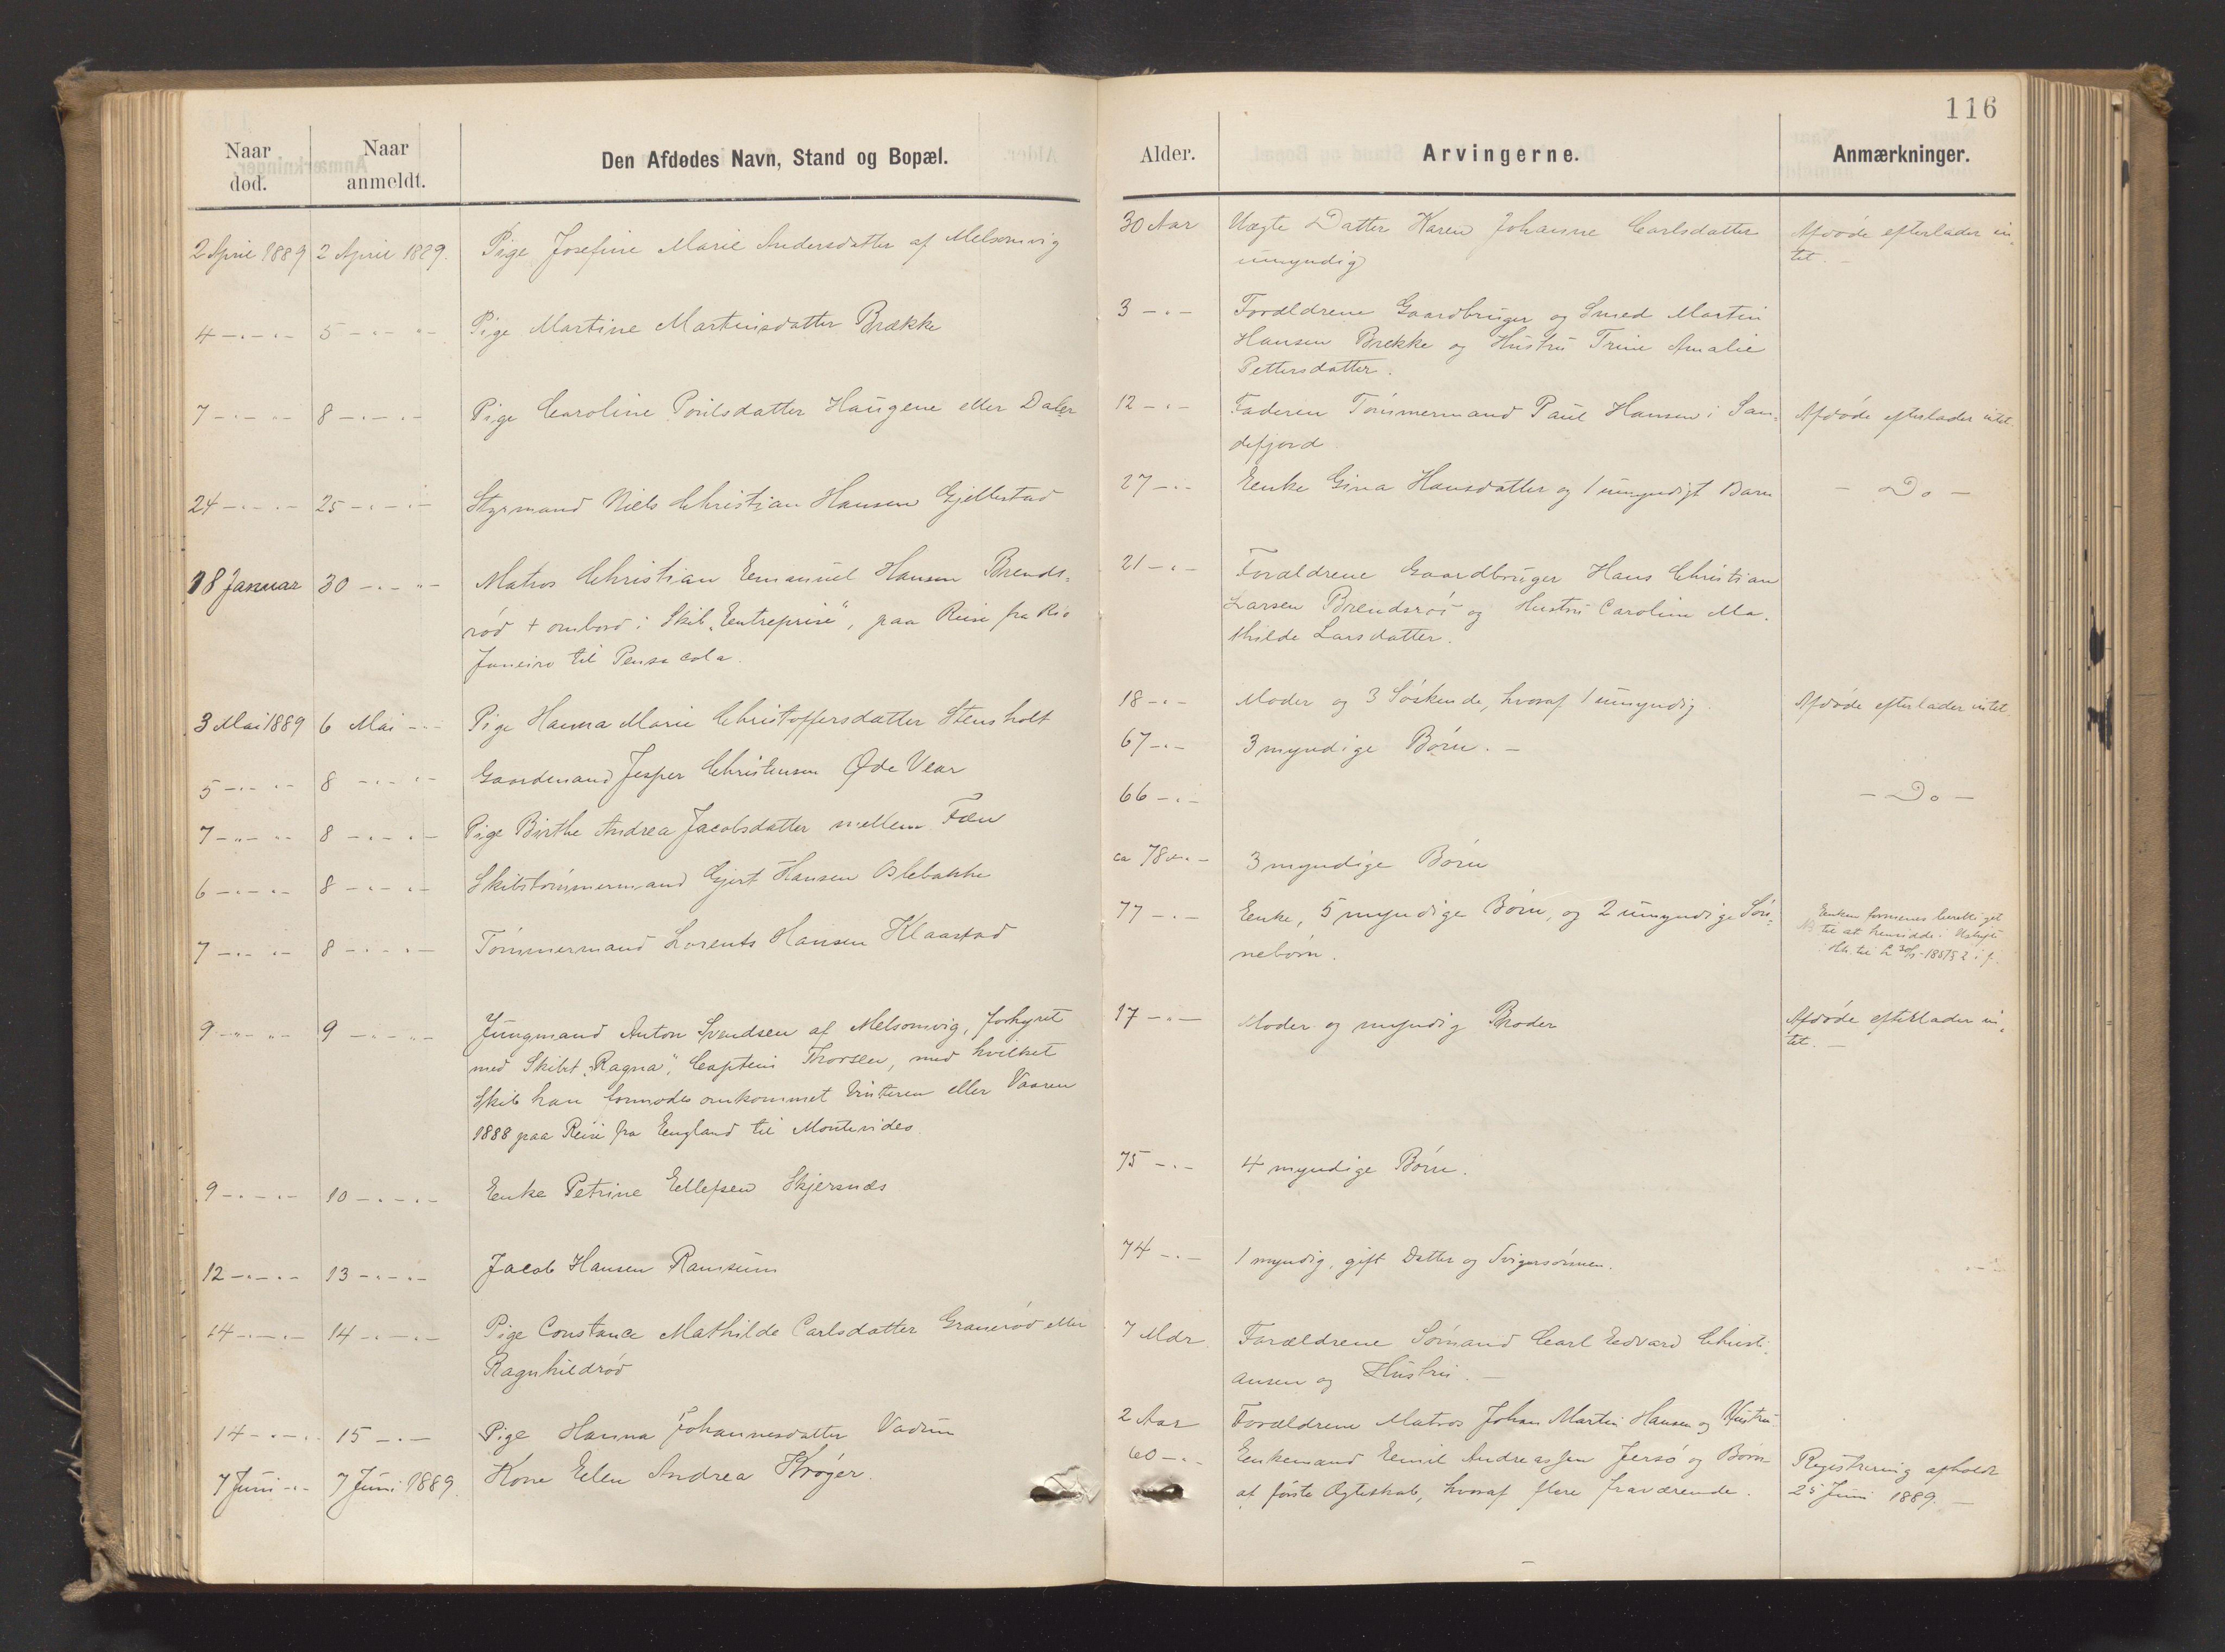 116
Naar død. Naar anmeldt. Den Afdødes Navn, Stand og Bopæl. Alder. Arvingerne. Anmærkninger.
2 April 1889 2 April 1889. Pige Josefine Marie Andersdatter af Melsomvig 30 Aar Uægte Datter Karen Johanne Carlsdatter Afdøde efterlader in-
umyndig tet. –
4 –„– „– 5 –„– „– Pige Martine Martinsdatter Brække 3 –„– Forældrene Gaardbruger og Smed Martin
Hansen Brekke og Hustru Trine Amalie
Pettersdatter.
7 –„– „– 8 –„– „– Pige Caroline Poulsdatter Haugene eller Daler 12 –„– Faderen Tømmermand Paul Hansen i San- Afdøde efterlader intet.
defjord
24 –„– „– 25 –„– „– Styrmand Niels Christian Hansen Gjellestad 27 –„– Enke Gina Hansdatter og 1 umyndigt Barn – Do –
18 Januar 30 –„– „– Matros Christian Emanuel Hansen Brends- 21 –„– Forældrene Gaardbruger Hans Christian
rød + ombord i Skib „Entreprise“, paa Reise fra Rio Larsen Brendsrø og Hustru Caroline Ma-
Janeiro til Pensacola. thilde Larsdatter.
3 Mai 1889 6 Mai –„– Pige Hanna Marie Christoffersdatter Stensholt 18 –„– Moder og 3 Søskende, hvoraf 1 umyndig. Afdøde efterlader intet.
5 –„– „– 8 –„– „– Gaardmand Jesper Christensen Øde Vear 67 –„– 3 myndige Børn. –
7 –„– „– 8 –„– „– Pige Birthe Andrea Jacobsdatter mellem Fæn 66 –„– – Do –
6 –„– „– 8 –„– „– Skibstømmermand Gjert Hansen Oslebakke ca 78 –„– 3 myndige Børn
7 –„– „– 8 –„– „– Tømmermand Lorents Hansen Klaastad 77 –„– Enke, 5 myndige Børn, og 2 umyndige Søn- Enken formenes berettiget
nebørn. til at hensidde i Uskifte
9 –„– „– 9 –„– „– Jungmand Anton Svendsen af Melsomvig, forhyret 17 –„– Moder og myndig Broder Afdøde efterlader in-
med Skibet „Ragna“, Captein Thorsen, med hvilket tet. –
Skib han formodes omkommet Vinteren eller Vaaren
1888 paa Reise fra England til Montevideo.
9 –„– „– 10 –„– „– Enke Petrine Ellefsen Skjersnæs 75 –„– 4 myndige Børn.
12 –„– „– 13 –„– „– Jacob Hansen Ramsum 74 –„– 1 myndig, gift Datter og Svigersønnen.
14 –„– „– 14 –„– „– Pige Constance Mathilde Carlsdatter Granerød eller 7 Mdr. Forældrene Sømand Carl Edvard Christi-
Ragnhildrød ansen og Hustru. –
14 –„– „– 15 –„– Pige Hanna Johannesdatter Vadum 2 Aar Forældrene Matros Johan Martin Hansen og Hustru
7 Juni –„– 7 Juni 1889. Kone Elen Andrea Krøger. 60 –„– Enkemand Emil Andreassen Jersø og Børn Registrering afholdt
af første Ægteskab, hvoraf flere fraværende. 25 Juni 1889. –